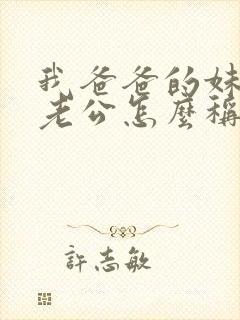 我爸爸的妹
老公怎麼稱
許志敏